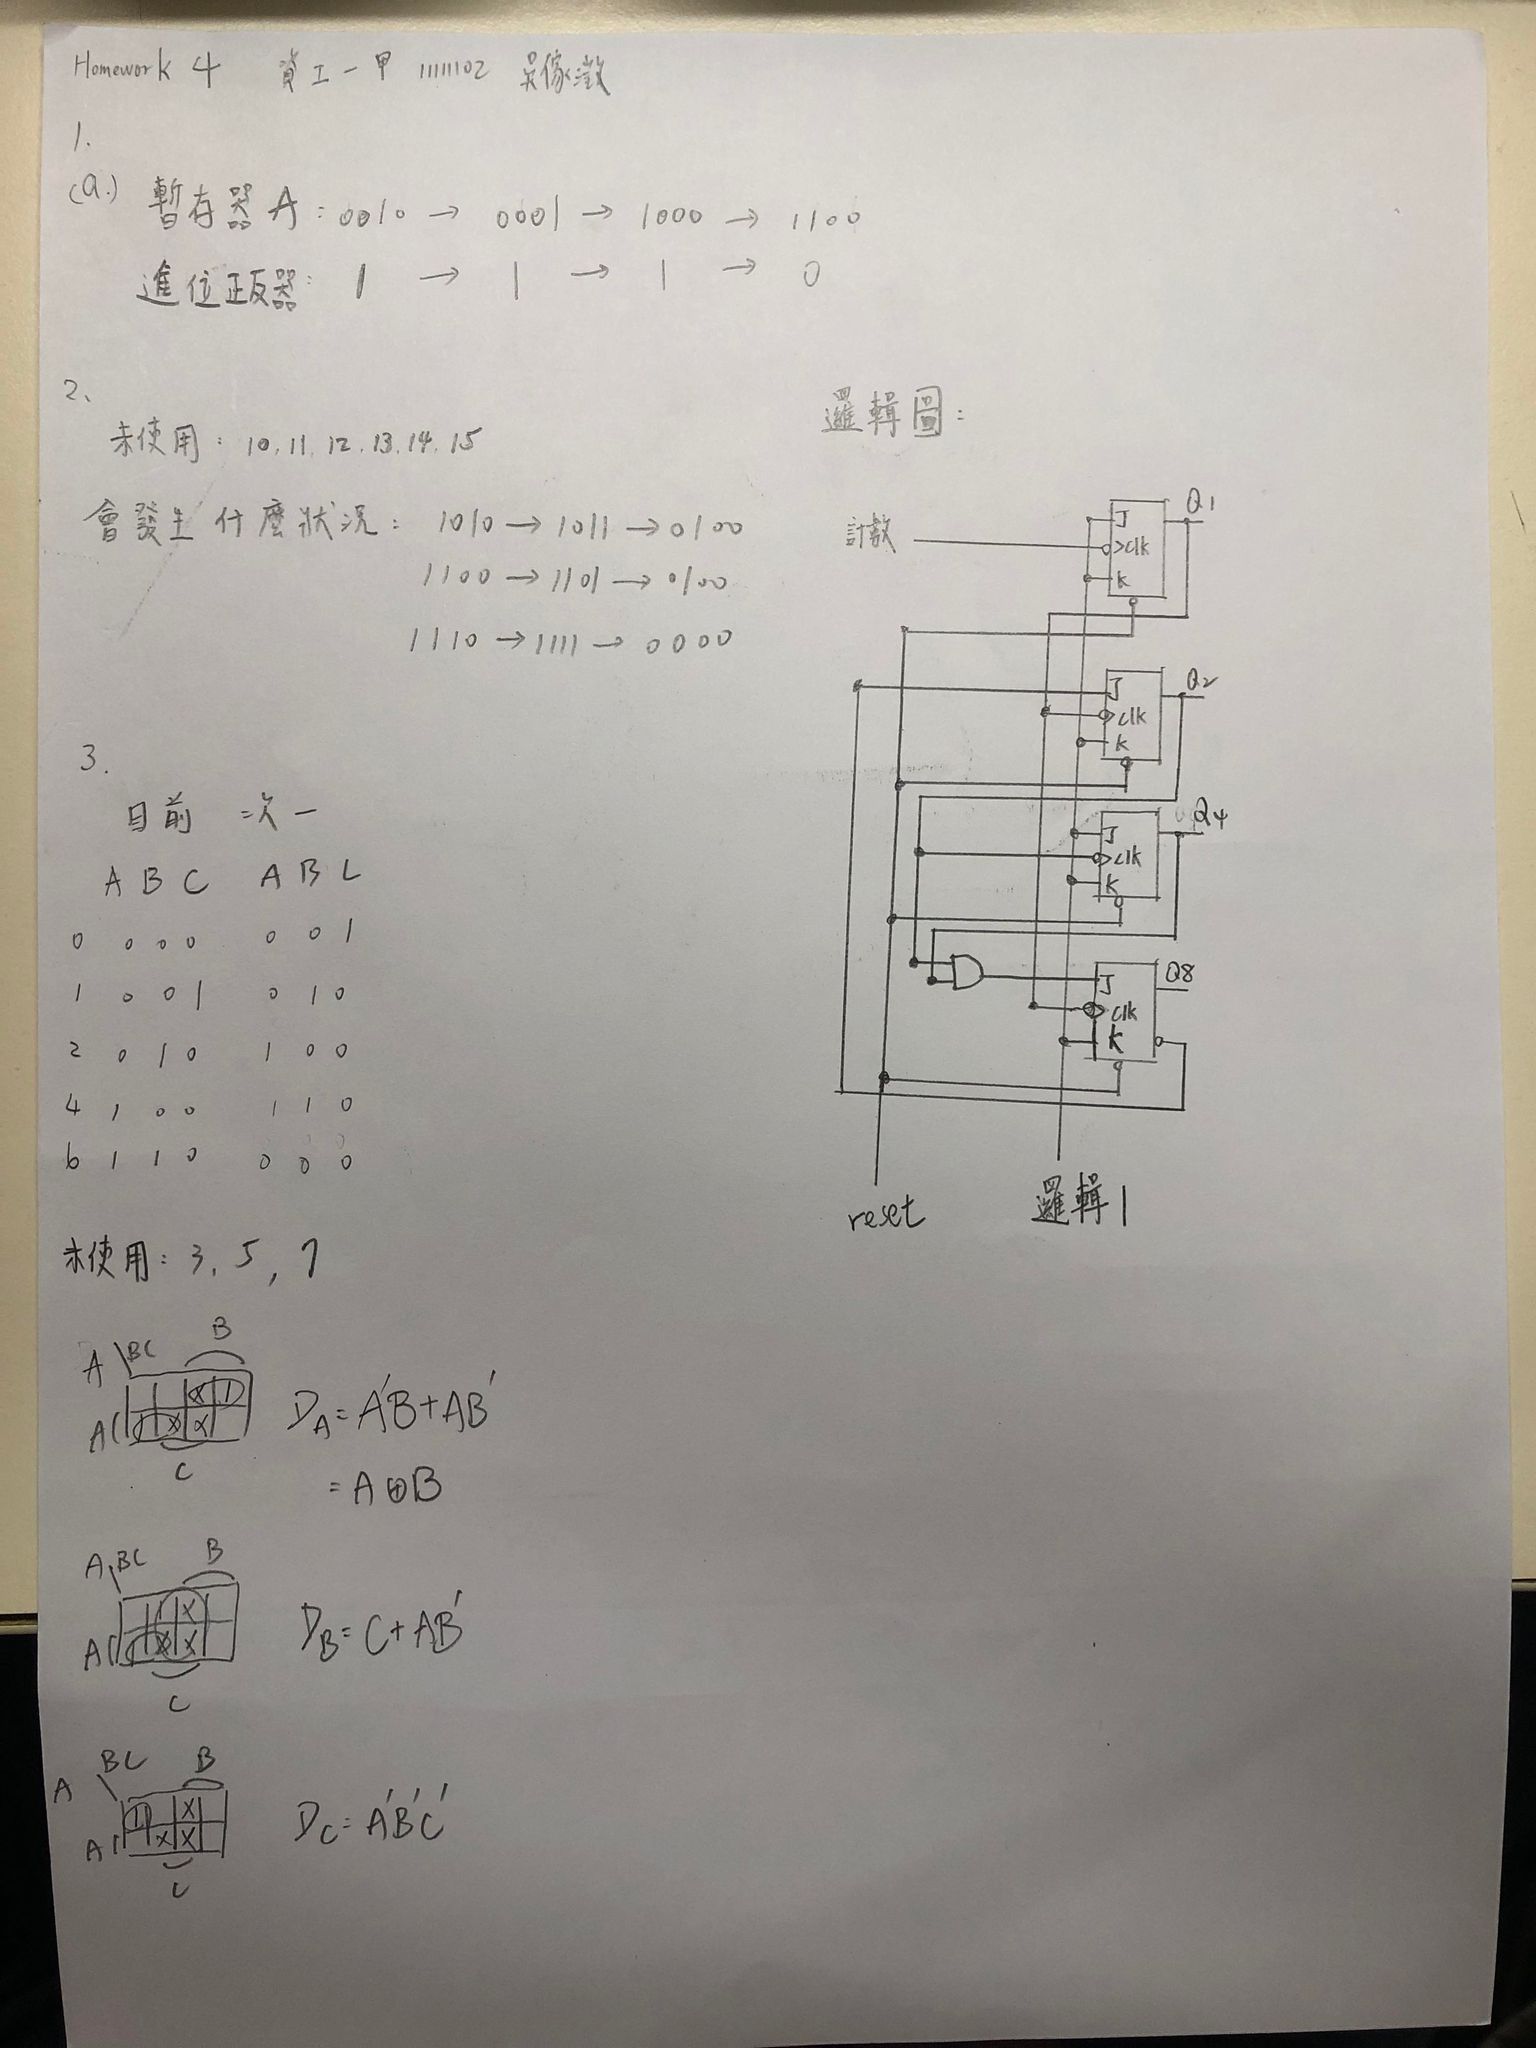 Homework 4 資工一甲 1111102 吳傢澂
1.
(a.) 暫存器 A : 0010 → 0001 → 1000 → 1100
進位正反器 : 1 → 1 → 1 → 0
2、
未使用 : 10, 11, 12, 13, 14, 15
會發生什麼狀況 : 1010 → 1011 → 0100
1100 → 1101 → 0100
1110 → 1111 → 0000
邏輯圖 :
計數
J
>clk
K
Q1
J
>clk
K
Q2
J
>clk
K
Q4
J
>clk
K
Q8
reset
邏輯1
3.
目前 次一
A B C A B C
0 0 0 0 0 0 1
1 0 0 1 0 1 0
2 0 1 0 1 0 0
4 1 0 0 1 1 0
6 1 1 0 0 0 0
未使用 : 3, 5, 7
A \ BC B
X 1
A 1 X X
C
DA = A'B + AB'
= A⊕B
A \ BC B
1 X
A 1 X X
C
DB = C + AB'
A \ BC B
1 X
A X X
C
DC = A'B'C'